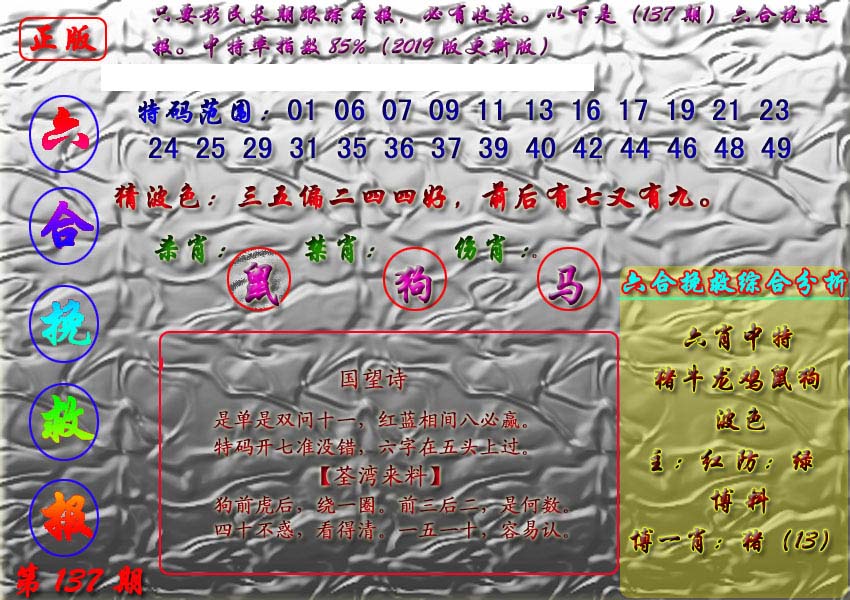 正版
只要彩民长期跟踪本报，必有收获。以下是（137期）六合挽救
报。中特率指数85%（2019版更新版）
特码范围：01 06 07 09 11 13 16 17 19 21 23
24 25 29 31 35 36 37 39 40 42 44 46 48 49
猜波色：三五偏二四四好，前后有七又有九。
杀肖：鼠 禁肖：狗 伤肖：马
六合挽救报
第137期
国望诗
是单是双问十一，红蓝相间八必赢。
特码开七准没错，六字在五头上过。
【荃湾来料】
狗前虎后，绕一圈。前三后二，是何数。
四十不惑，看得清。一五一十，容易认。
六合挽救综合分析
六肖中特
猪牛龙鸡鼠狗
波色
主：红防：绿
博料
博一肖：猪（13）